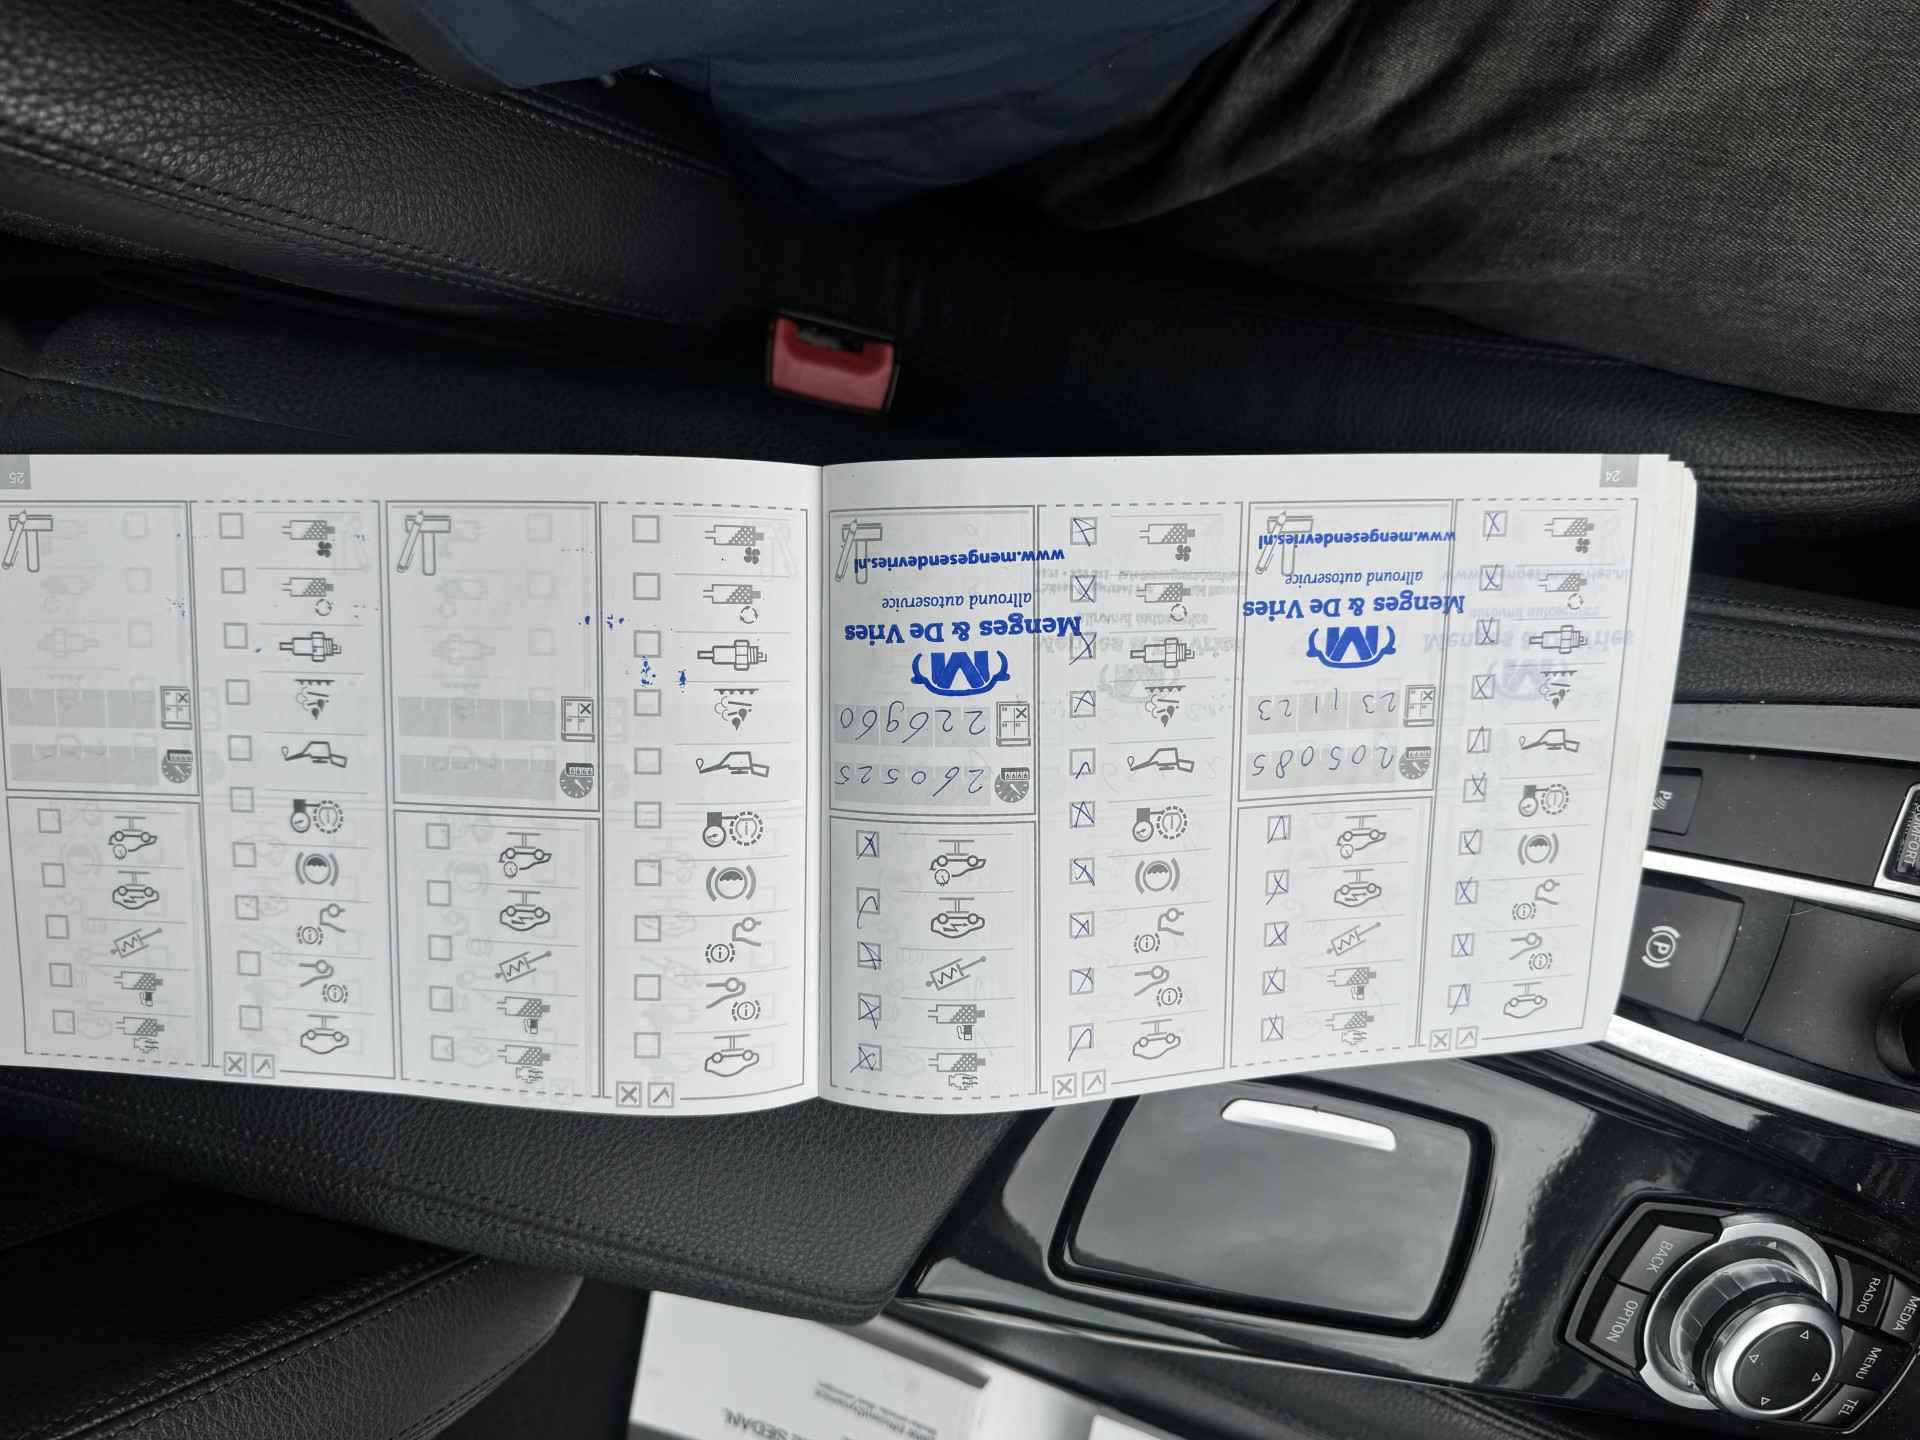 205085
23 11 23
Menges & De Vries
allround autoservice
www.mengesendevries.nl
24
260525
226960
Menges & De Vries
allround autoservice
www.mengesendevries.nl
25
P
BACK
OPTION
RADIO
MEDIA
MENU
TEL
SEDAN.